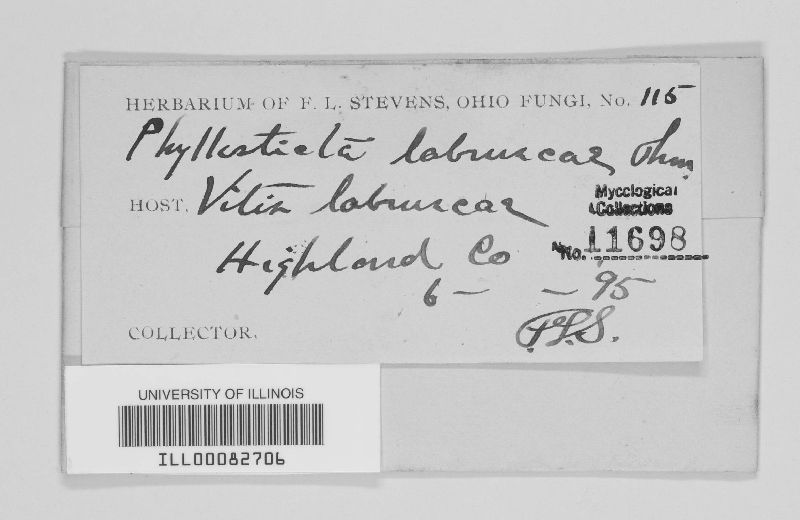 HERBARIUM OF F. L. STEVENS, OHIO FUNGI, No. 115
Phyllosticta labruscae Thum.
HOST, Vitis labruscae
Mycological Collections
No. 11698
Highland Co
6 - - 95
COLLECTOR, F.L.S.
UNIVERSITY OF ILLINOIS
ILL00082706